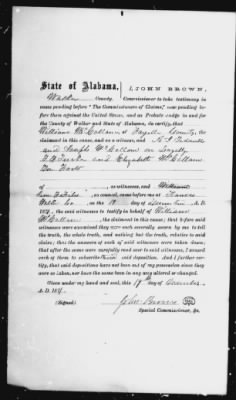 State of Alabama, } I, JOHN BROWN,
Walker County. Commissioner to take testimony in
cases pending before "The Commissioners of Claims," now pending be-
fore them against the United States, and as Probate Judge in and for
the County of Walker and State of Alabama, do certify, that
William McCollum, of Fayette County, the
claimant in this case, and as a witness, and
and Joseph McCollum on Loyalty
and Elizabeth McCollum
of as witnesses, and William
as counsel, came before me at
on the 19 day of December
187 , the said witnesses to testify in behalf of William
McCollum , the claimant in this case; that before said
witnesses were examined they were each severally sworn by me to tell
the truth, the whole truth, and nothing but the truth, relative to said
claim; that the answers of each of said witnesses were taken down;
that after the same were carefully read over to said witnesses, I caused
each of them to subscribe said deposition. And I further cer-
tify, that said depositions have not been out of my possession since they
were so taken, nor have the same been in any way altered or changed.
Given under my hand and seal, this 19th day of December
A. D. 187
(Signed) John Brown
Special Commissioner, &c.